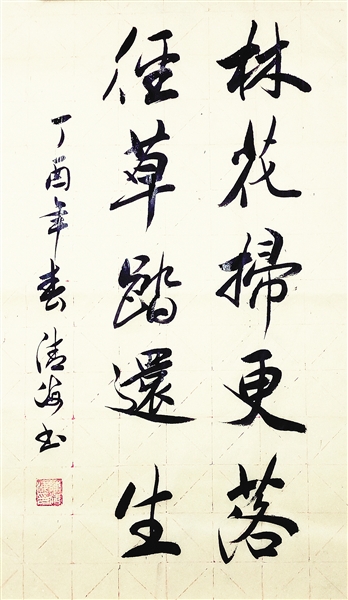 林花掃更落
徑草踏還生
丁酉年春清海书